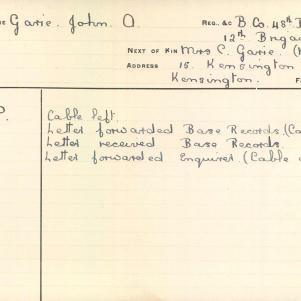 Garie. John. A. Reg., &c B. Co. 48th
12th Brigad
Next of Kin Mrs C. Garie. (
Address 15. Kensington
Kensington.
Cable left.
Letter forwarded Base Records. (Ca
Letter received Base Records.
Letter forwarded Enquirer. (Cable